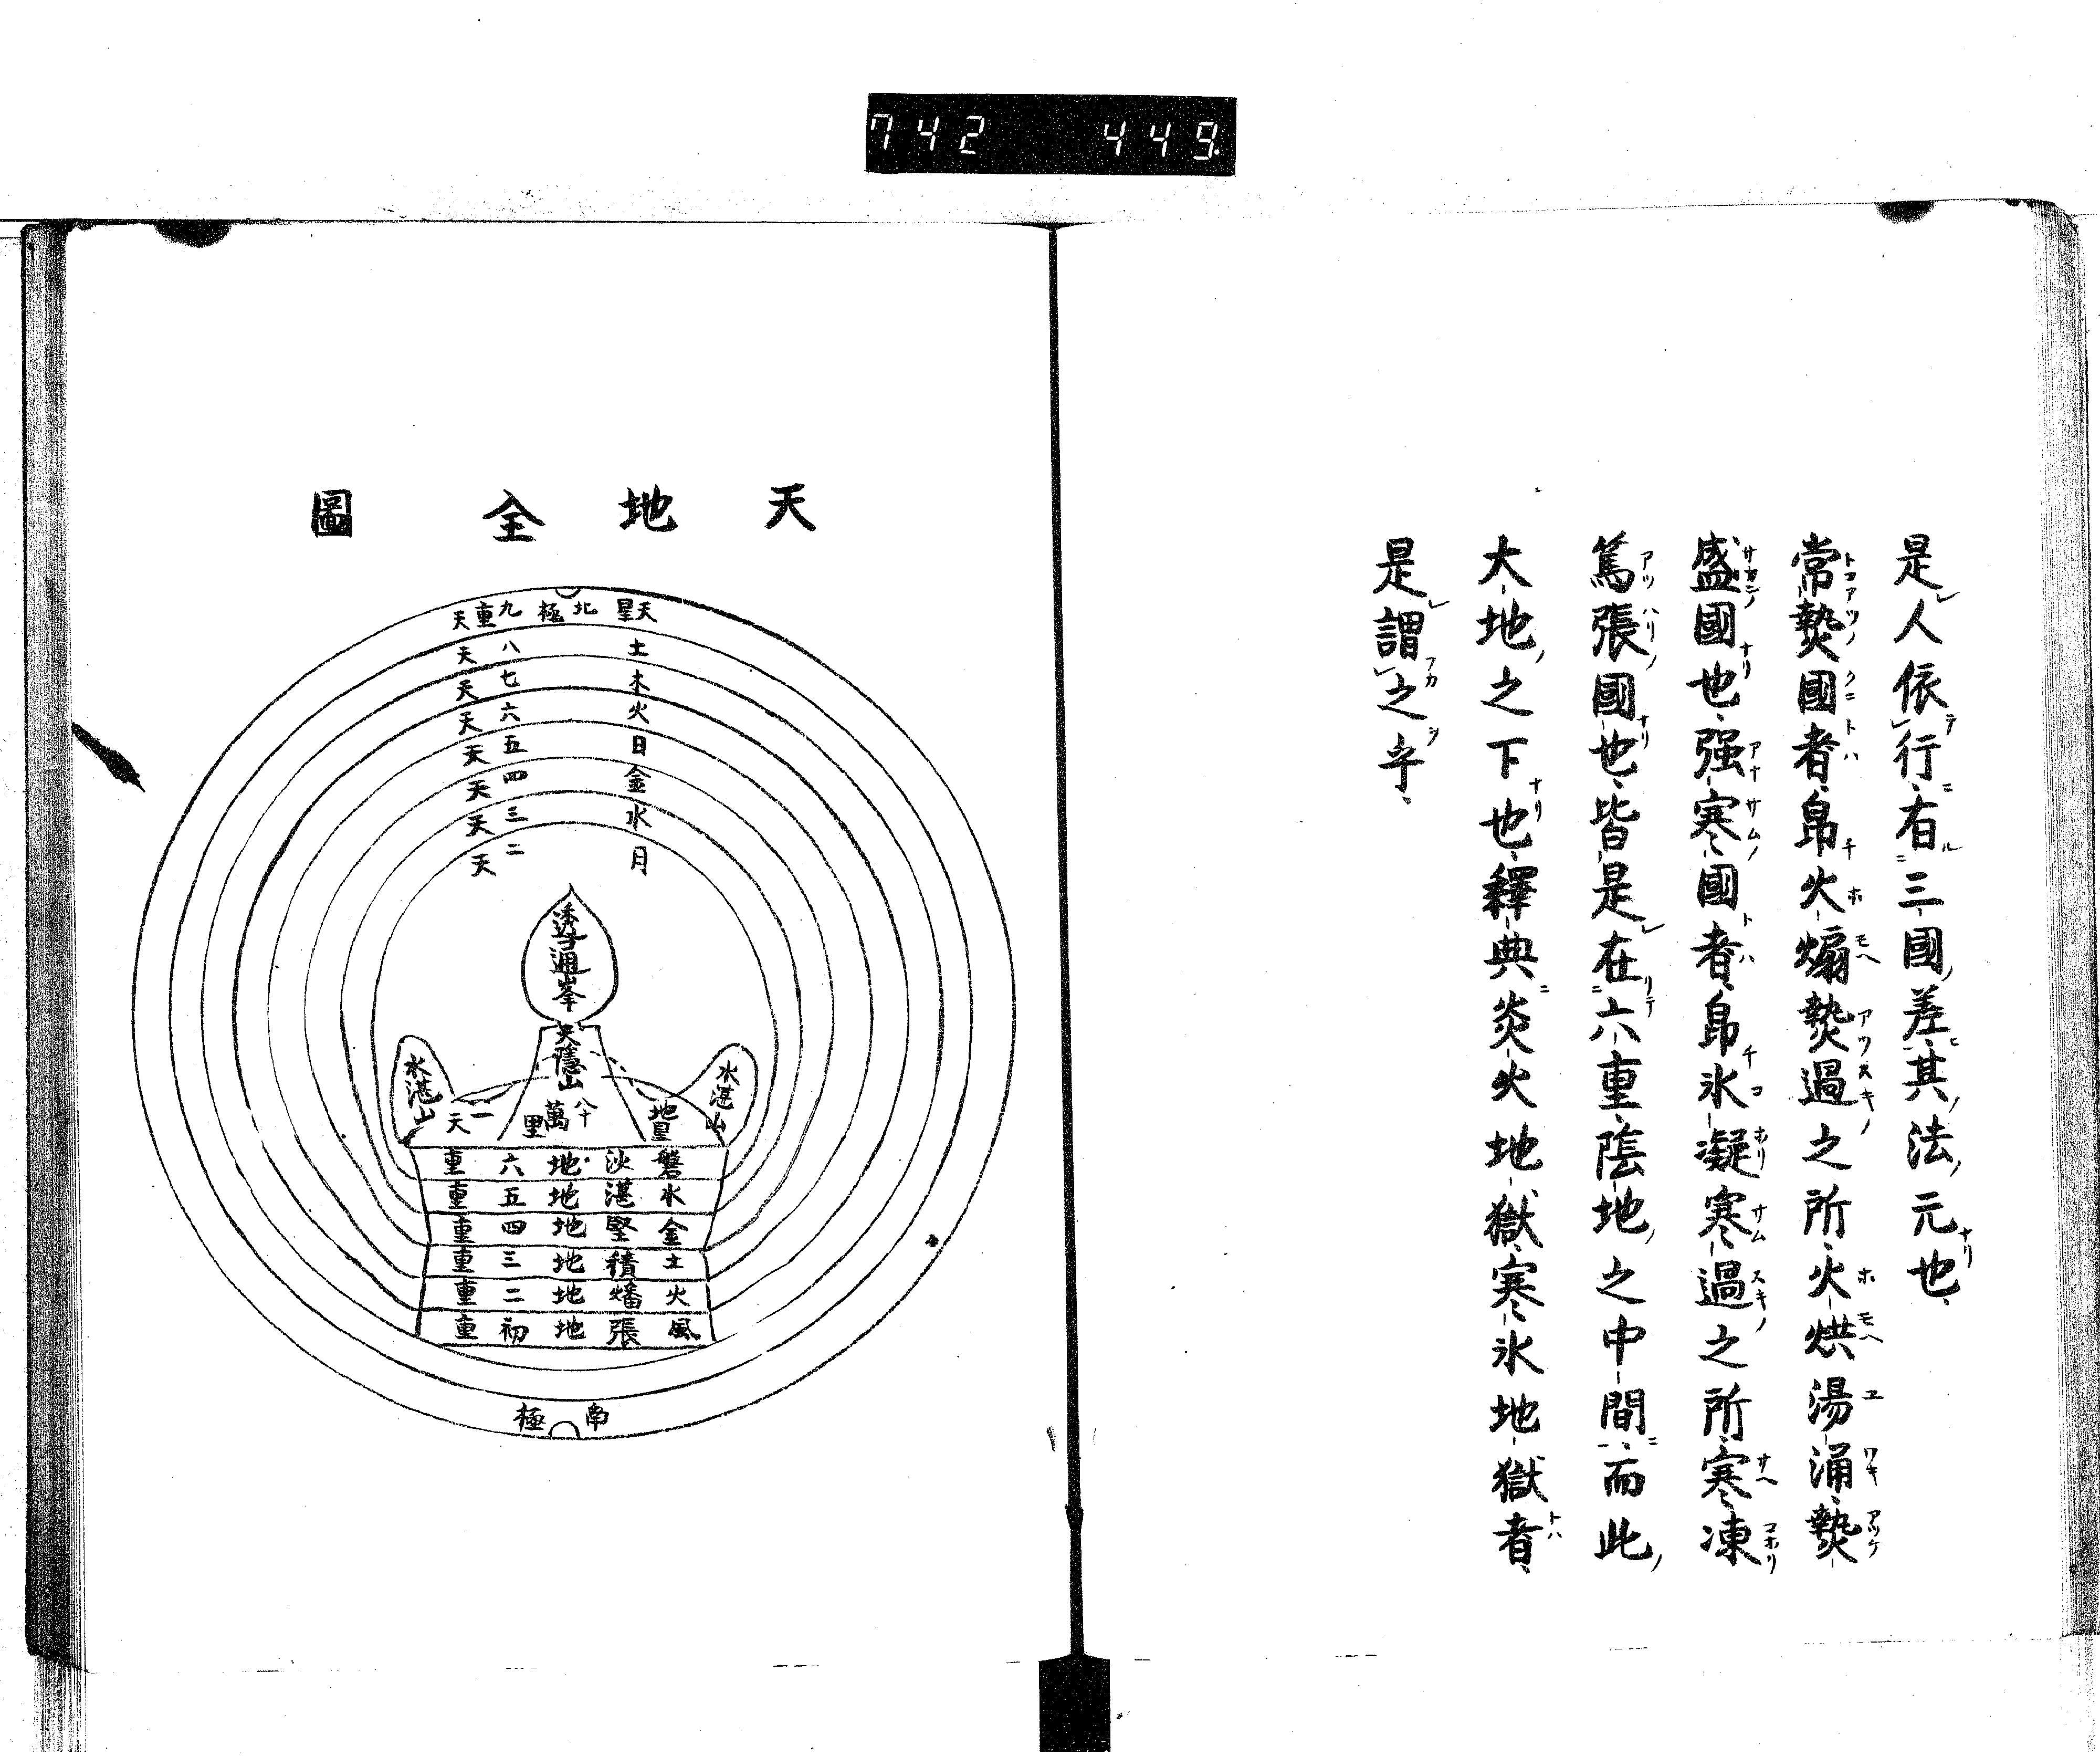 742 449
是人依行右三國差其法元也
常𤍠國者帛火煽𤍠過之所火烘湯涌𤍠
盛國也强寒國者帛氷凝寒過之所寒凍
篤張國也皆是在六重陰地之中間而此
大地之下也釋典炎火地獄寒氷地獄者
是謂之乎
天地全圖
天星 北極 九重天
土 八天
木 七天
火 六天
日 五天
金 四天
水 三天
月 二天
透通峯
天隱山
水湛山
水湛山
地皇 八十萬里 一天
磐沙地六重
水湛地五重
金堅地四重
土積地三重
火燔地二重
風張地初重
南極